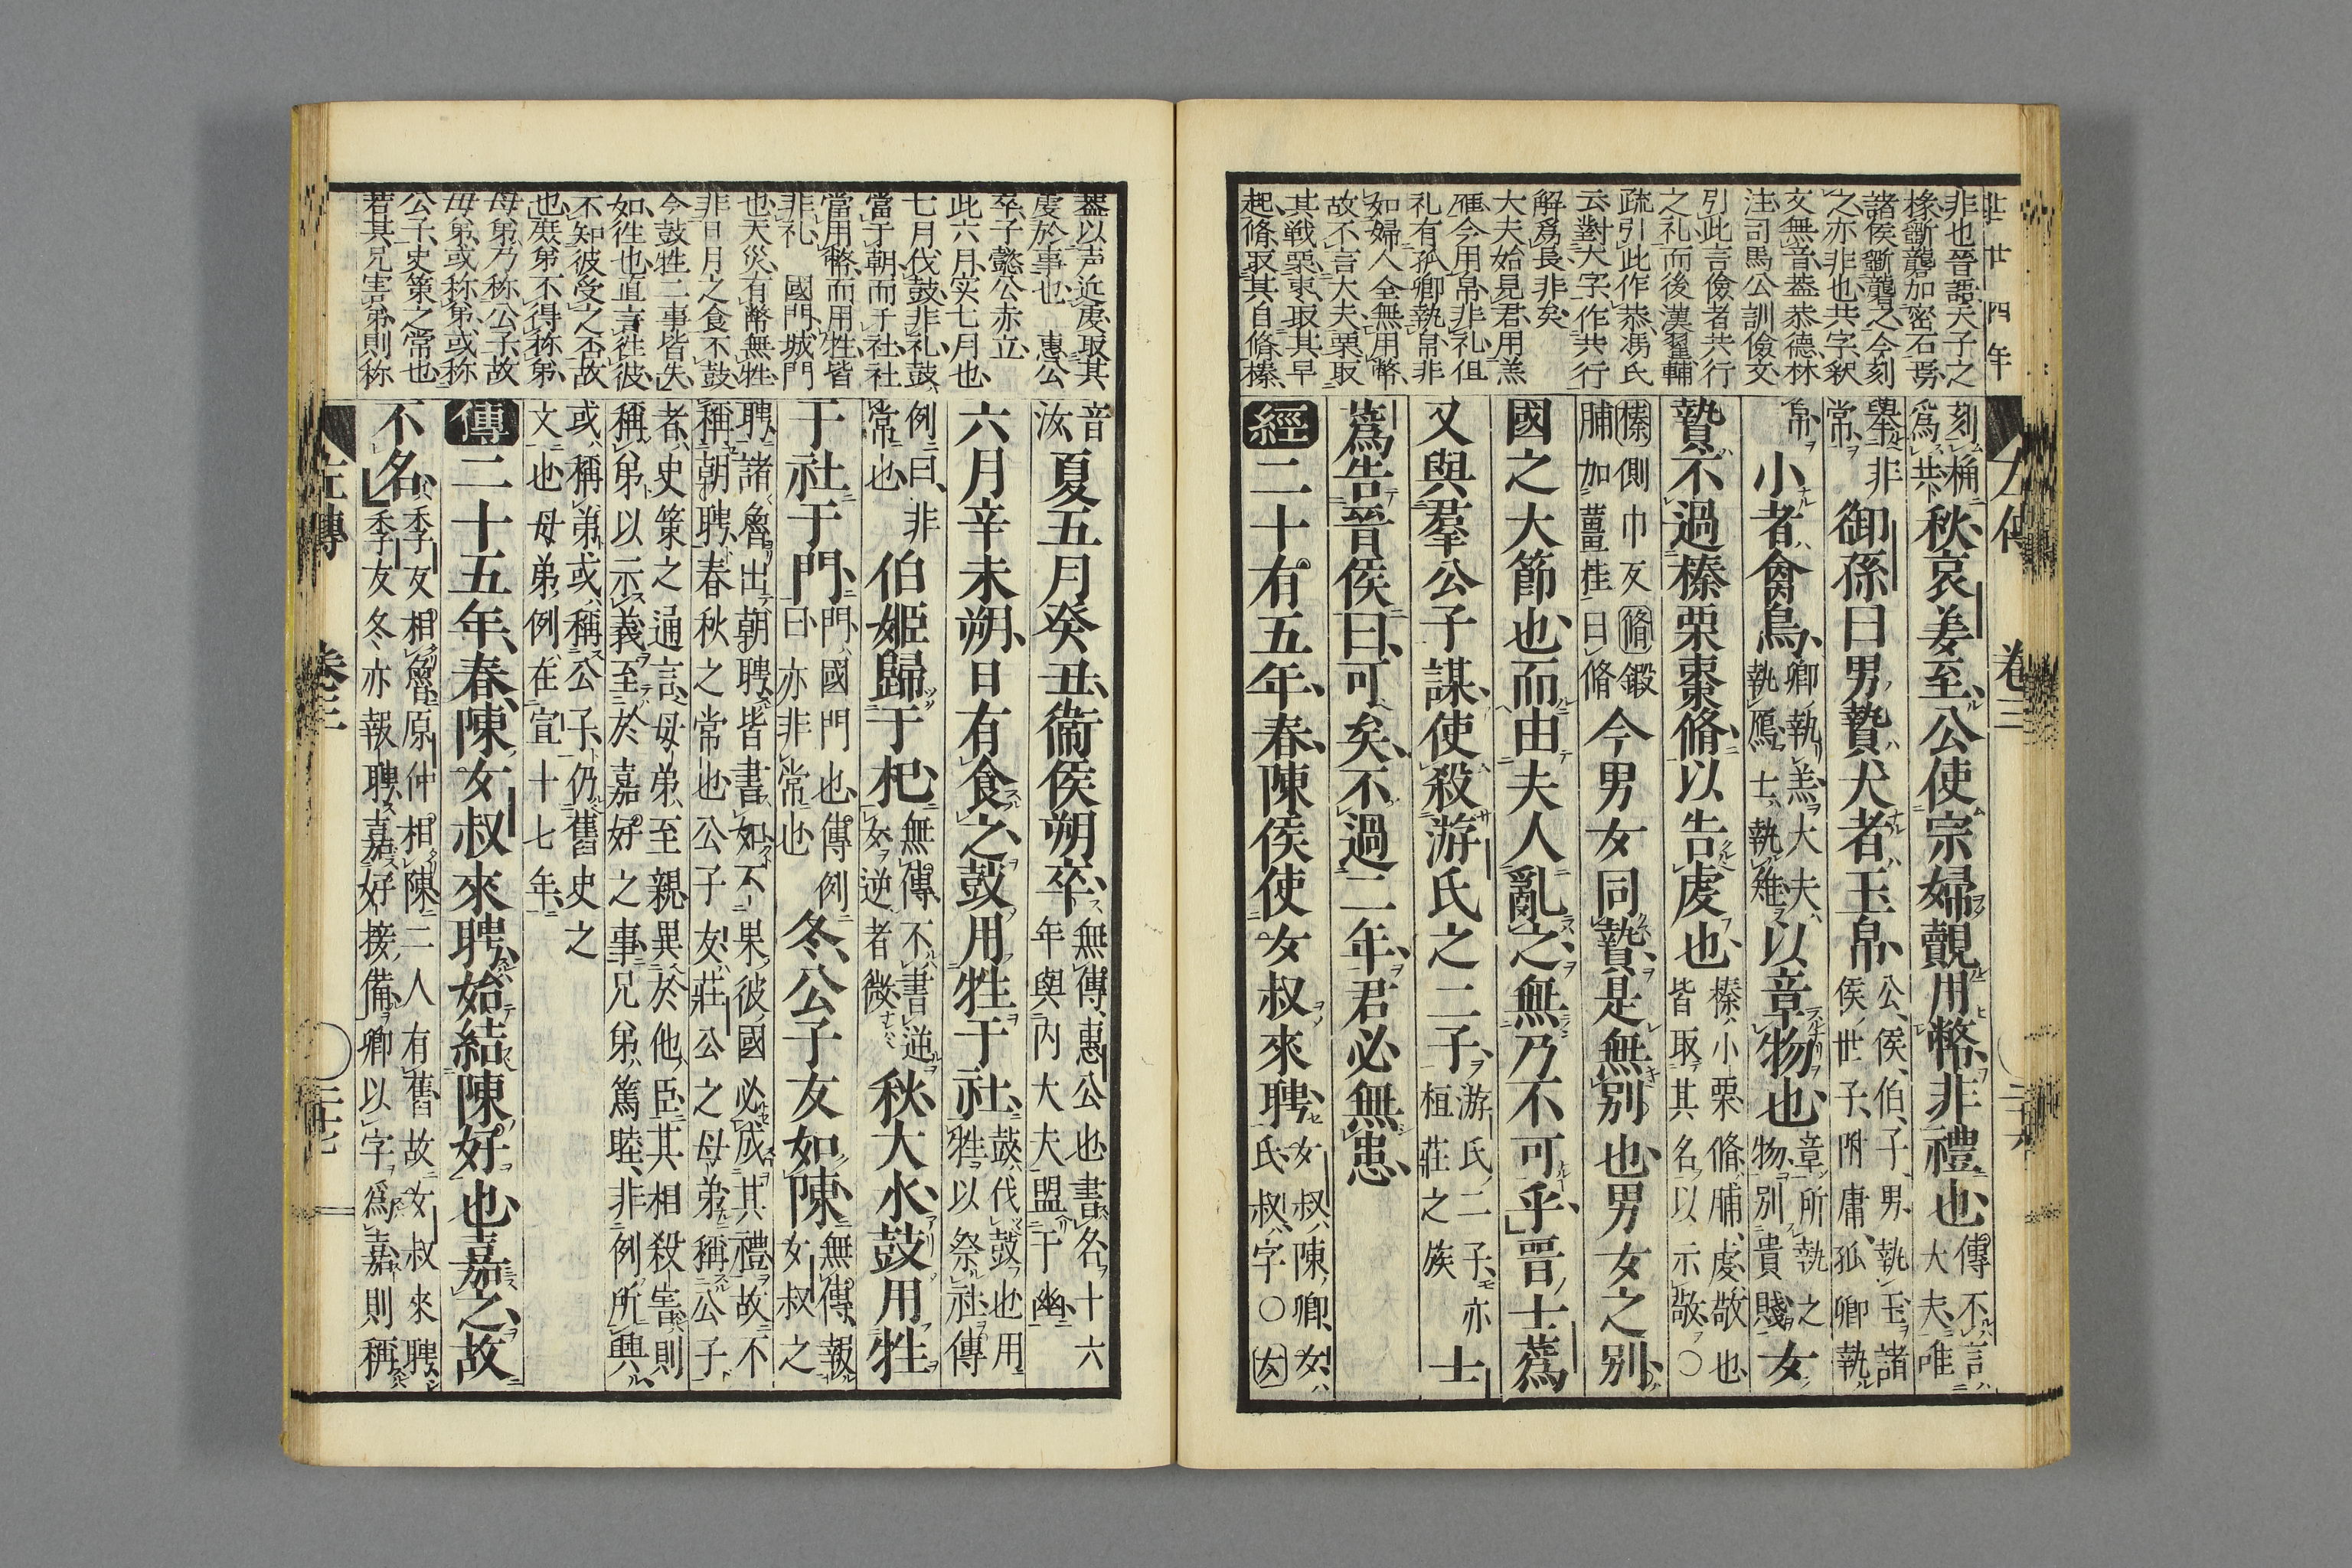 莊廿四年
非也晉語天子之
椽斲礱加密石焉
諸侯斲礱之今刻
之亦非也共字釈
文無音葢恭德林
注司馬公訓儉文
引此言儉者共行
之礼而後漢翟輔
疏引此作恭馮氏
云對大字作共行
解爲長非矣
大夫始見君用羔
鴈今用帛非礼但
礼有孤卿執帛非
如婦人全無用幣
故不言大夫栗取
其戦栗棗取其早
起脩取其自脩榛
左傳 卷三 二十六
刻桷
爲共
秋哀姜至公使宗婦覿用幣非禮也
傳不言
大夫唯
舉非
常
御孫曰男贄大者玉帛
公侯伯子男執玉諸
侯世子附庸孤卿執
帛
小者禽鳥
卿執羔大夫
執鴈士執雉
以章物也
章所執之
物別貴賤
女
贄不過榛栗棗脩以告虔也
榛小栗脩脯虔敬也
皆取其名以示敬〇
榛側巾反脩鍛
脯加薑桂曰脩
今男女同贄是無別也男女之別
國之大節也而由夫人亂之無乃不可乎晉士蔿
又與羣公子謀使殺游氏之二子
游氏二子亦
桓莊之族
士
蔿告晉侯曰可矣不過二年君必無患
經二十有五年春陳侯使女叔來聘
女叔陳卿女
氏叔字〇女
葢以声近虔取其
虔於事也 惠公
卒子懿公赤立
此六月実七月也
七月伐鼓非礼鼓
當于朝而于社社
當用幣而用牲皆
非礼 國門城門
也天災有幣無牲
非日月之食不鼓
今鼓牲二事皆失
如徃也直言徃彼
不知彼受之否故
也庶弟不得称弟
母弟乃称公子故
母弟或称弟或称
公子史策之常也
若其兄害弟則称
音
汝
夏五月癸丑衞侯朔卒
無傳惠公也書名十六
年與内大夫盟于幽
六月辛未朔日有食之鼓用牲于社
鼓伐鼓也用
牲以祭社傳
例曰非
常也
伯姬歸于杞
無傳不書逆
女逆者微
秋大水鼓用牲
于社于門
門國門也傳例
曰亦非常也
冬公子友如陳
無傳報
女叔之
聘諸魯出朝聘皆書如不果彼國必成其禮故不
稱朝聘春秋之常也公子友莊公之母弟稱公子
者史策之通言母弟至親異於他臣其相殺害則
稱弟以示義至於嘉好之事兄弟篤睦非例所興
或稱弟或稱公子仍舊史之
文也母弟例在宣十七年
傳二十五年春陳女叔來聘始結陳好也嘉之故
不名
季友相魯原仲相陳二人有舊故女叔來聘
季友冬亦報聘嘉好接備卿以字爲嘉則稱
左傳 卷三 二十七